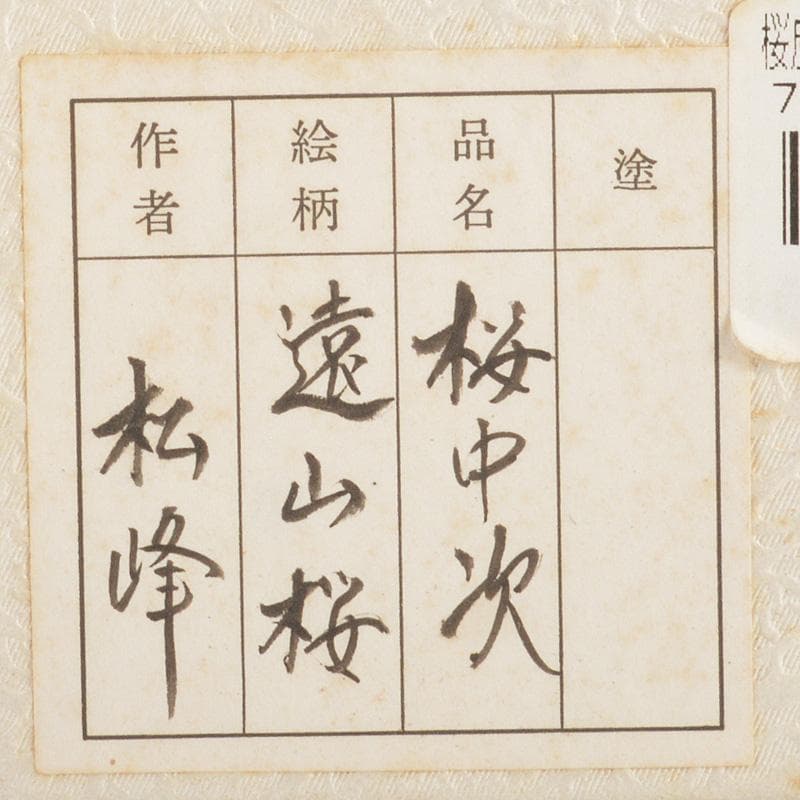 塗
品名
桜中次
絵柄
遠山桜
作者
松峰
桜
7